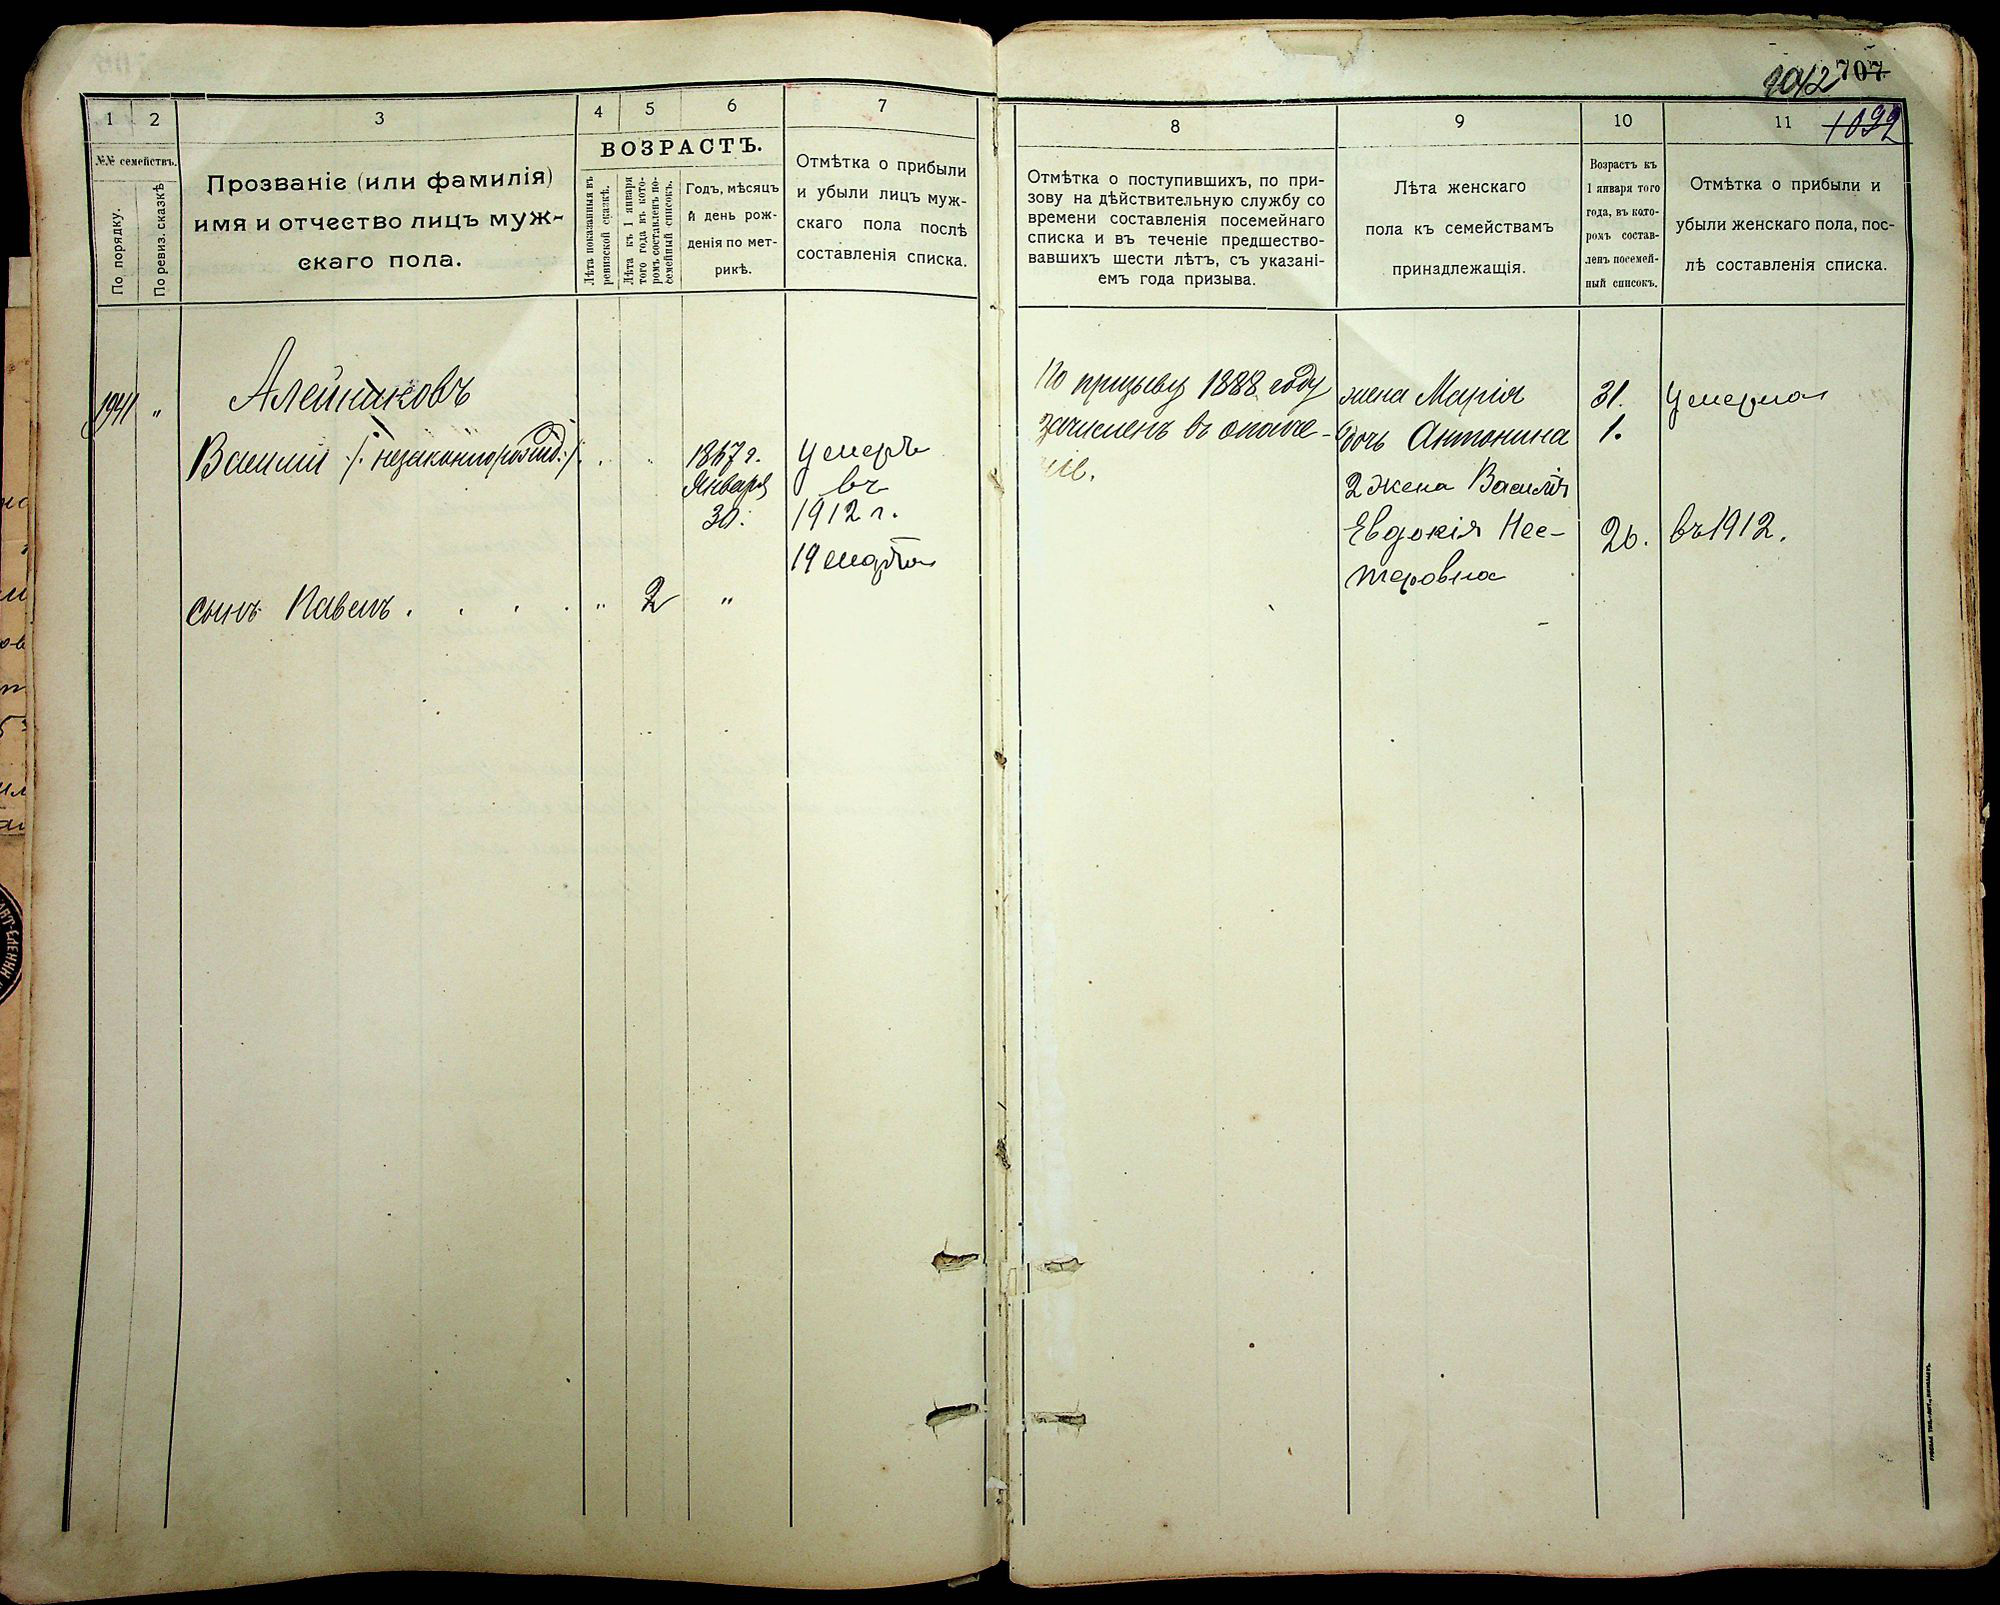 1042 707
1099
1
2
3
4
5
6
7
№№ семействъ.
По порядку.
По ревиз. сказкѣ
Прозваніе (или фамилія)
имя и отчество лицъ муж-
скаго пола.
ВОЗРАСТЪ.
Лѣта показанныя въ
ревизской сказкѣ.
Лѣта къ 1 января
того года въ кото-
ромъ составленъ по-
семейный списокъ.
Годъ, мѣсяцъ
й день рож-
денія по мет-
рикѣ.
Отмѣтка о прибыли
и убыли лицъ муж-
скаго пола послѣ
составленія списка.
1941
"
Алейниковъ
Василий /: незаконнорожд. :/
1867 г.
Января
30.
Умеръ
въ
1912 г.
19 марта
сынъ Павелъ . . . .
"
2
"
8
9
10
11
Отмѣтка о поступившихъ, по при-
зову на дѣйствительную службу со
времени составленія посемейнаго
списка и въ теченіе предшество-
вавшихъ шести лѣтъ, съ указані-
емъ года призыва.
Лѣта женскаго
пола къ семействамъ
принадлежащія.
Возрастъ къ
1 января того
года, въ кото-
ромъ состав-
ленъ посемей-
ный списокъ.
Отмѣтка о прибыли и
убыли женскаго пола, пос-
лѣ составленія списка.
По призыву 1888 году
зачисленъ въ ополче-
ніе.
жена Марія
31.
Умерла
дочь Антонина
1.
2 жена Василія
Евдокія Нес-
теровна
26.
въ 1912.